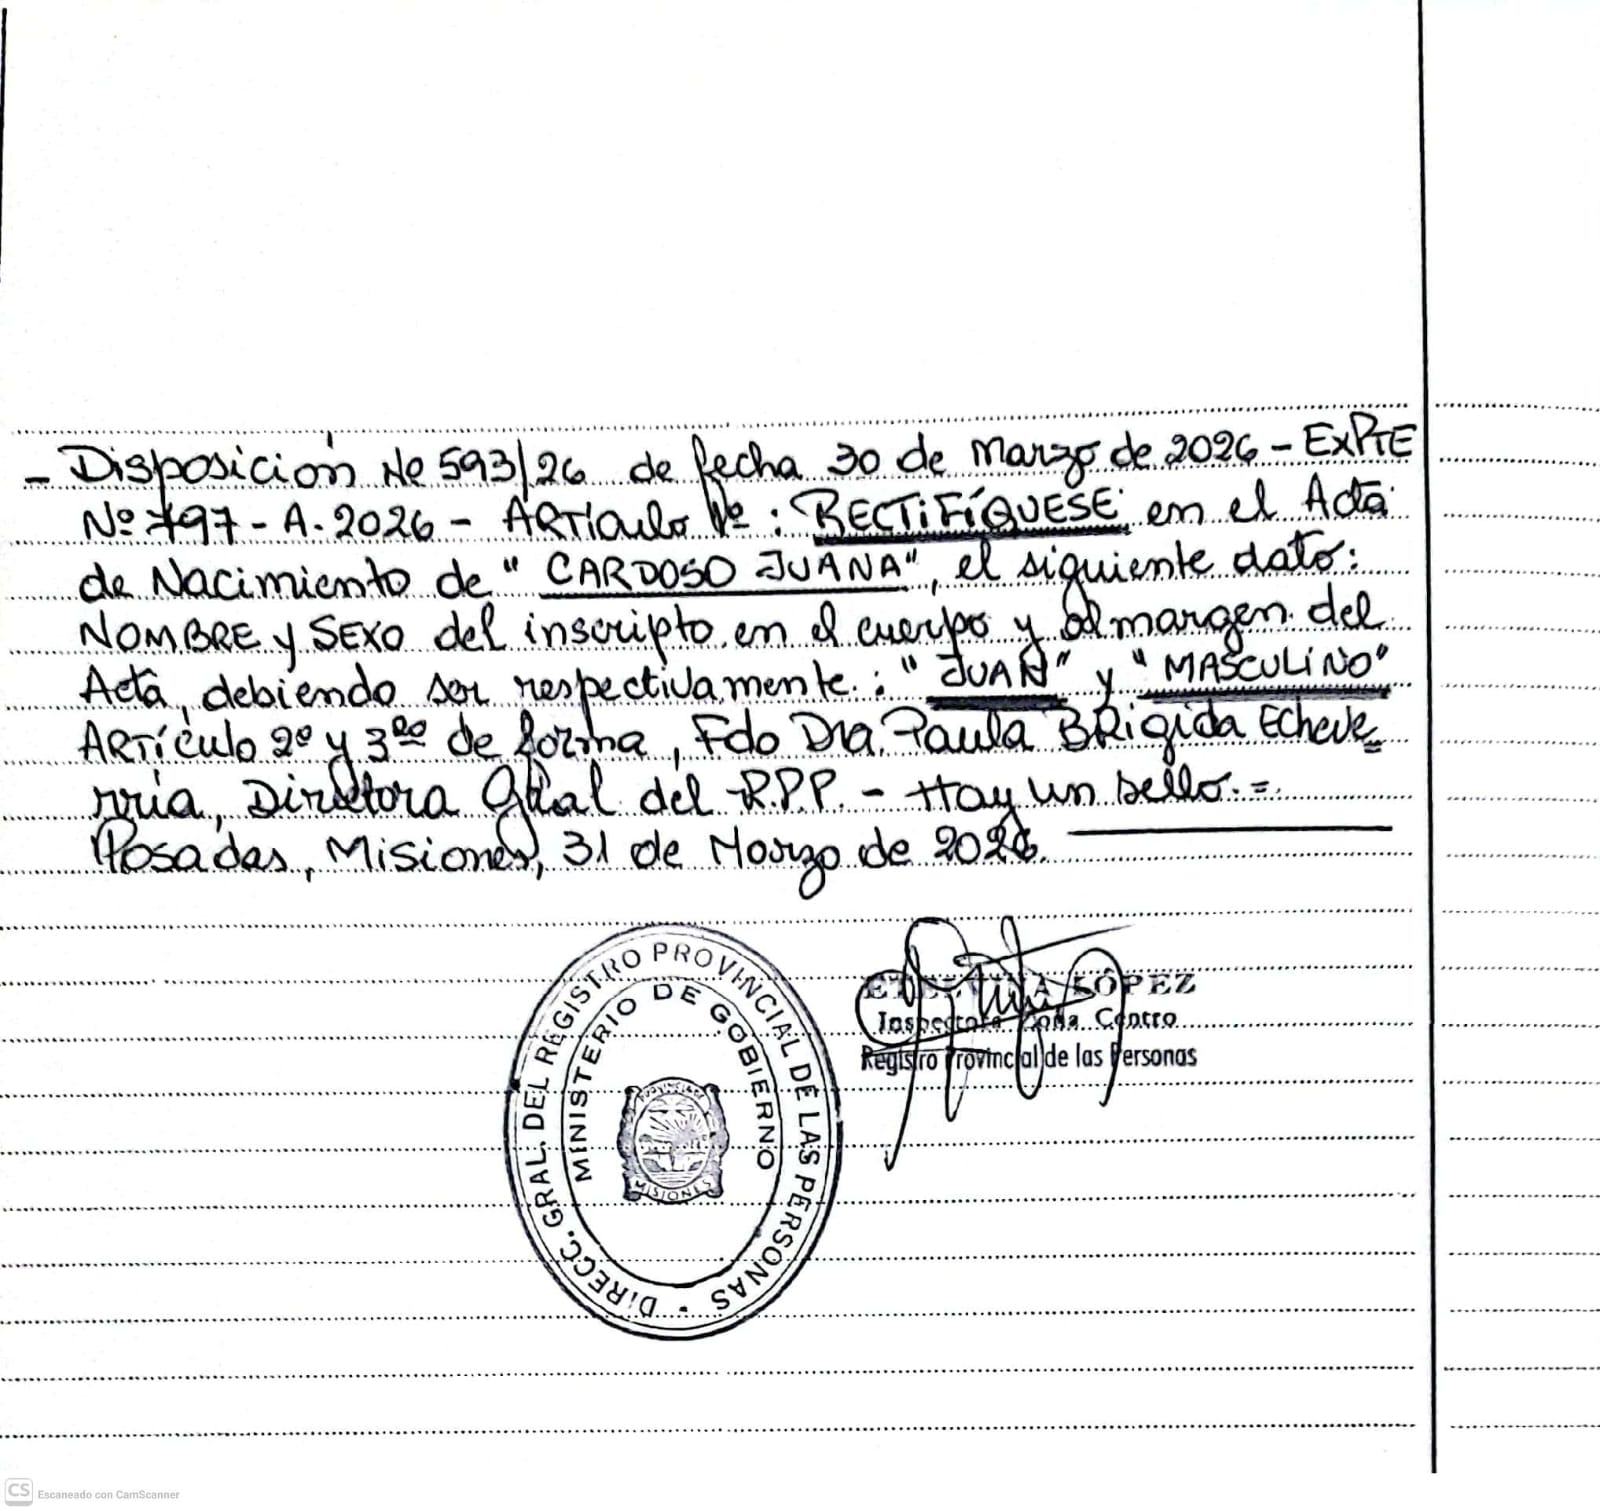 - Disposición No 593/26 de fecha 30 de Marzo de 2026 - ExPTE
Nº 797 - A. 2026 - ARTículo 1º : RECTIFÍQUESE en el Acta
de Nacimiento de " CARDOSO JUANA", el siguiente dato:
NOMBRE y SEXO del inscripto en el cuerpo y al margen del
Acta, debiendo ser respectivamente : "JUAN" y "MASCULINO"
ARTÍCULO 2º y 3ro de forma, Fdo Dra. Paula BRígida Echeve
rría, Directora Gral del R.P.P. - Hay un sello. =
Posadas, Misiones, 31 de Marzo de 2026.
DIRECC. GRAL. DEL REGISTRO PROVINCIAL DE LAS PERSONAS
MINISTERIO DE GOBIERNO
PROVINCIA DE
MISIONES
LÓPEZ
Inspectora Zona Centro
Registro Provincial de las Personas
CS Escaneado con CamScanner